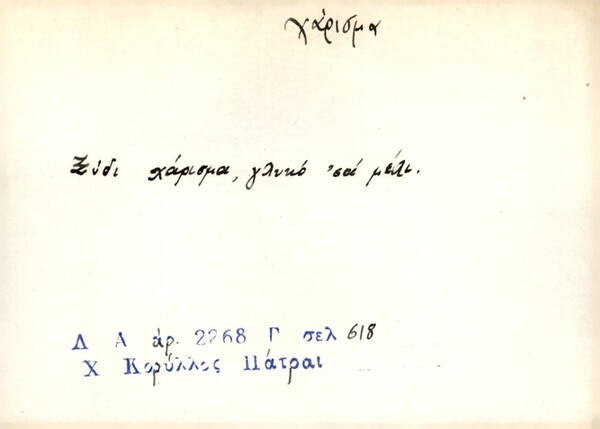 χάρισμα
Ξύδι χάρισμα, γλυκό 'σά μέλι.
Λ Α ἀρ. 2268 Γ σελ 618
Χ Κορύλλος Πάτραι